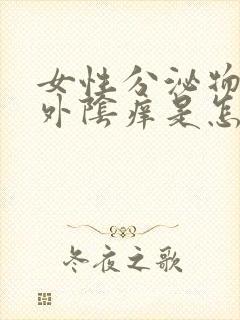 女性分泌物
外陰痒是怎
冬夜之歌